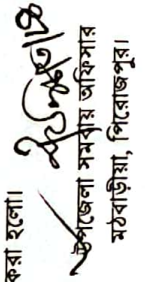 করা হলো।
উপজেলা সমবায় অফিসার
মঠবাড়ীয়া, পিরোজপুর।